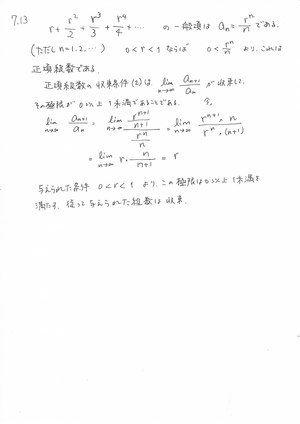 7.13
r + r²/2 + r³/3 + r⁴/4 + ⋯ の一般項は aₙ = rⁿ/n である。
(ただし n=1,2,⋯) 0<r<1 ならば 0< rⁿ/n より、これは
正項級数である。
正項級数の収束条件(2)は、lim_{n→∞} aₙ₊₁/aₙ が収束して、
その極限が0以上1未満であることである。 今、
lim_{n→∞} aₙ₊₁/aₙ = lim_{n→∞} (rⁿ⁺¹/(n+1))/(rⁿ/n) = lim_{n→∞} rⁿ⁺¹·n/(rⁿ·(n+1))
= lim_{n→∞} r· n/(n+1) = r
与えられた条件 0<r<1 より、この極限は0以上1未満を
満たす。従って与えられた級数は収束。